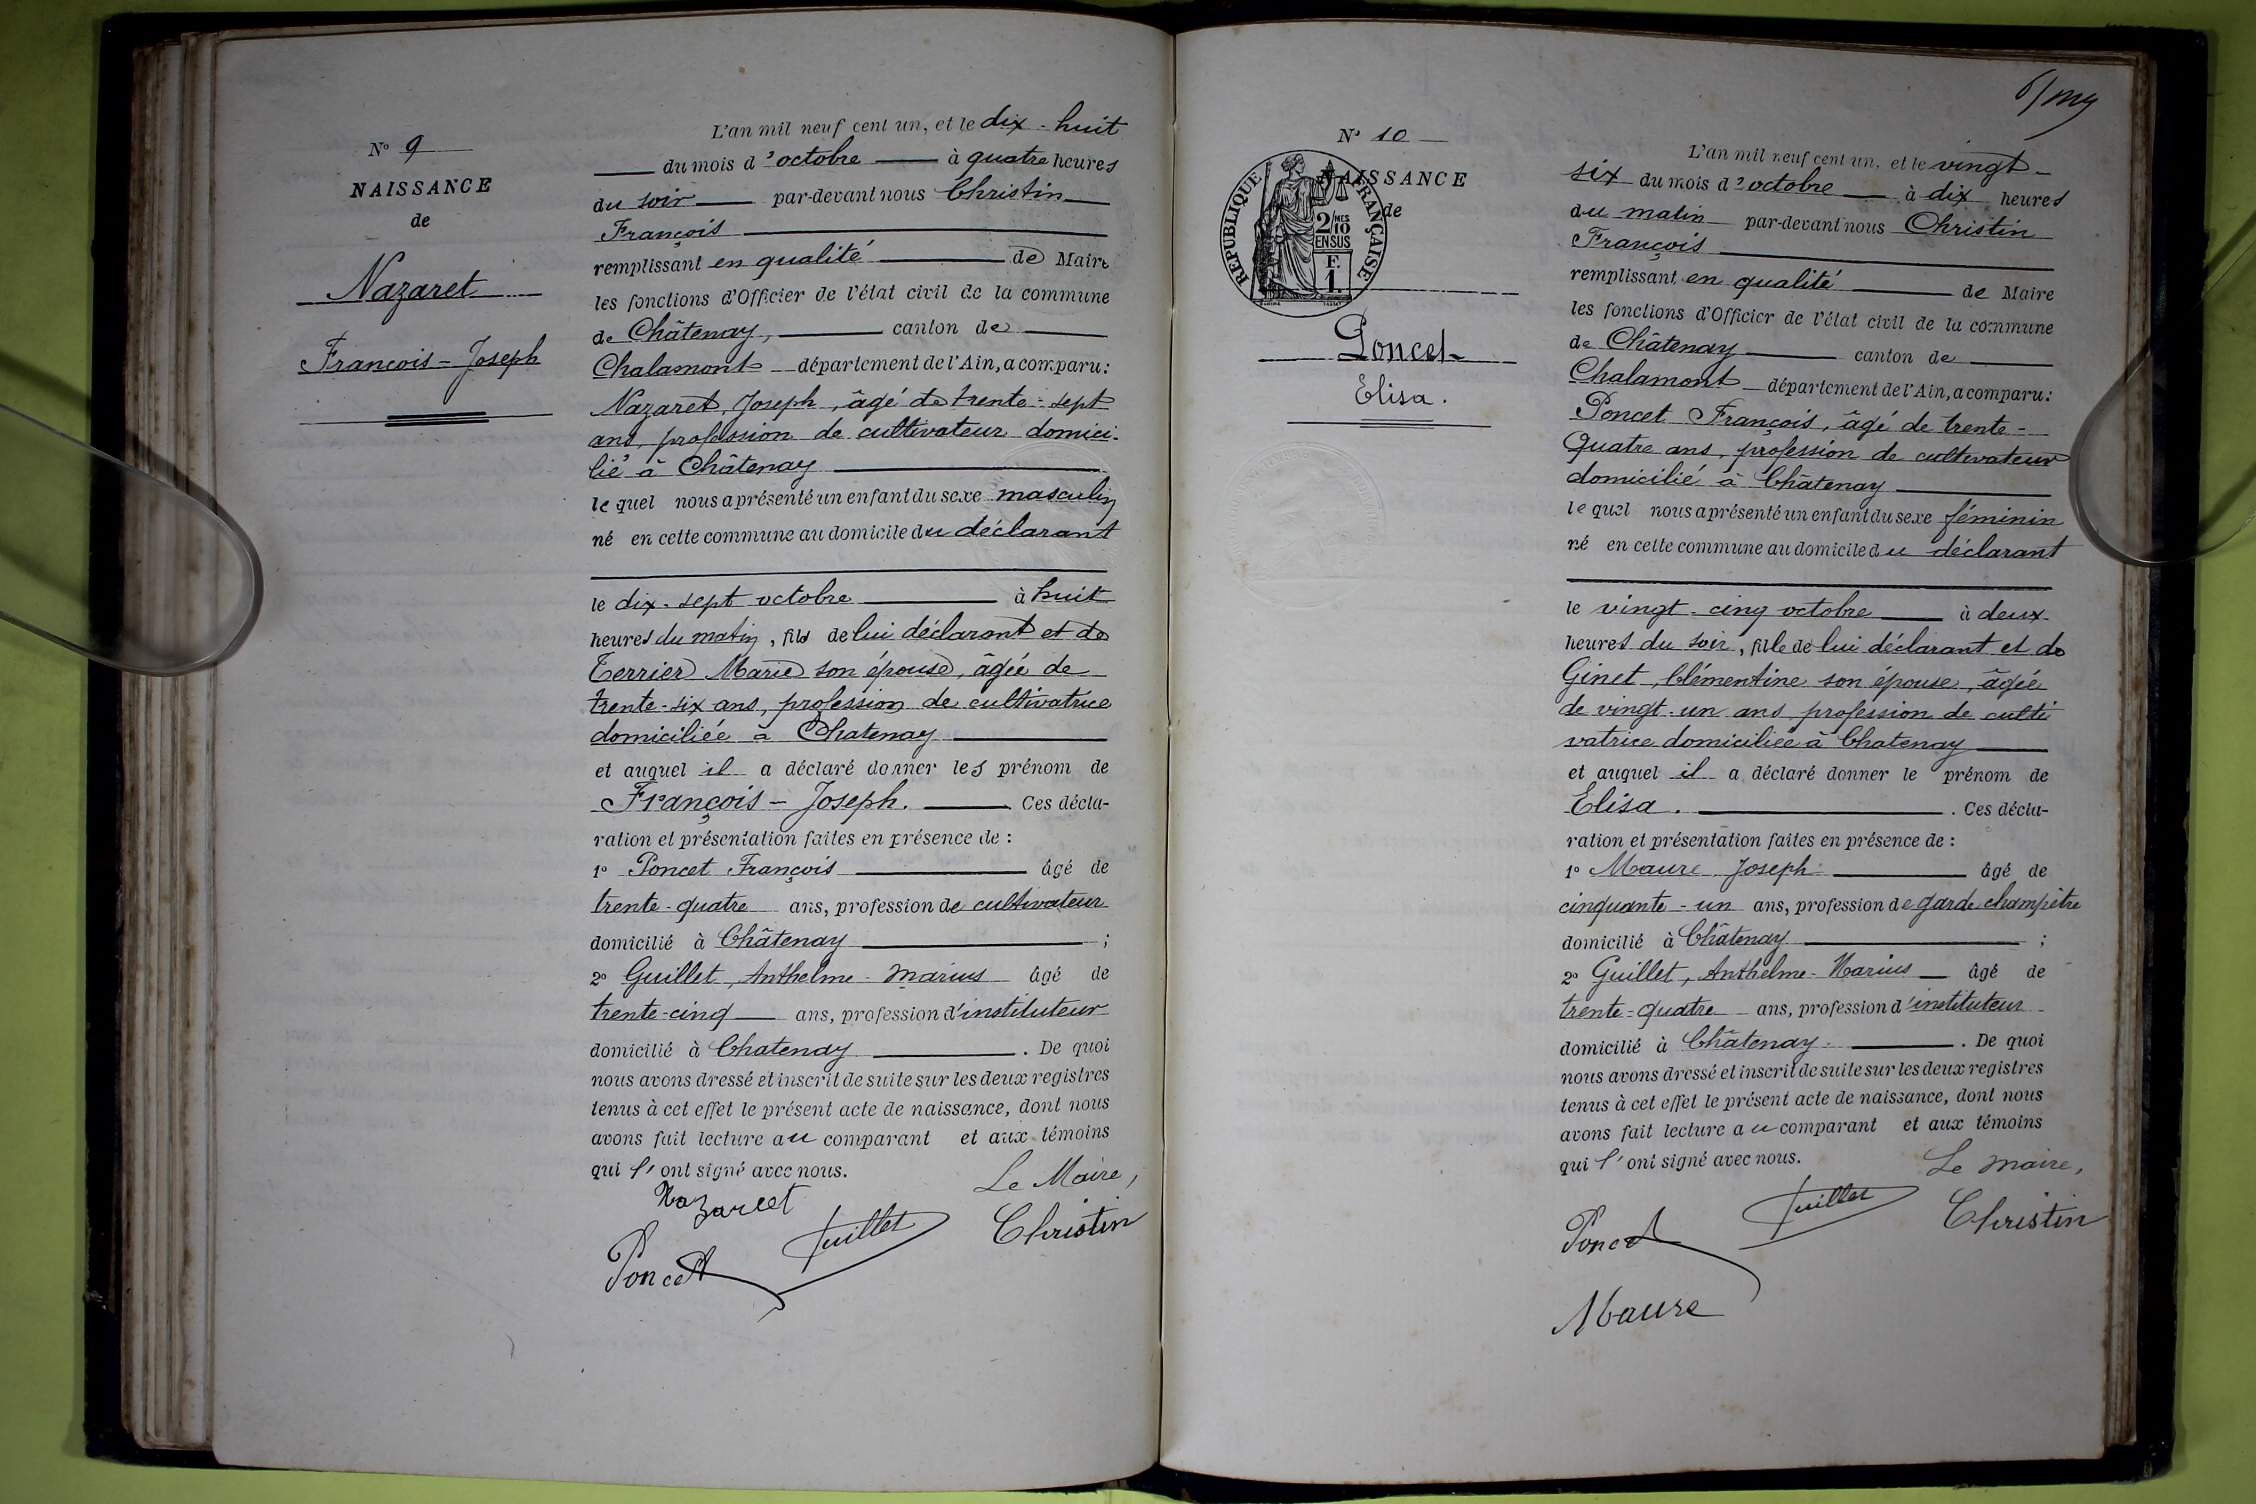 N° 9
NAISSANCE
de
Nazaret
François - Joseph
L'an mil neuf cent un, et le dix-huit
du mois d'octobre à quatre heures
du soir par-devant nous Christin
François
remplissant en qualité de Maire
les fonctions d'Officier de l'état civil de la commune
de Châtenay, canton de
Chalamont département de l'Ain, a comparu:
Nazaret, Joseph, âgé de trente-sept
ans, profession de cultivateur domici-
lié à Châtenay
lequel nous a présenté un enfant du sexe masculin
né en cette commune au domicile du déclarant
le dix-sept octobre à huit
heures du matin, fils de lui déclarant et de
Terrier Marie son épouse, âgée de
trente-six ans, profession de cultivatrice
domiciliée à Chatenay
et auquel il a déclaré donner les prénom de
François - Joseph. Ces décla-
ration et présentation faites en présence de :
1° Poncet François âgé de
trente-quatre ans, profession de cultivateur
domicilié à Châtenay ;
2° Guillet, Anthelme-Marius âgé de
trente-cinq ans, profession d'instituteur
domicilié à Chatenay . De quoi
nous avons dressé et inscrit de suite sur les deux registres
tenus à cet effet le présent acte de naissance, dont nous
avons fait lecture au comparant et aux témoins
qui l'ont signé avec nous.
Le Maire,
Nazaret
Poncet Guillet Christin
N° 10
NAISSANCE
de
REPUBLIQUE FRANÇAISE
2/10 MES
EN SUS
F.
1.
Poncet
Elisa.
L'an mil neuf cent un, et le vingt-
six du mois d'octobre à dix heures
du matin par-devant nous Christin
François
remplissant en qualité de Maire
les fonctions d'Officier de l'état civil de la commune
de Châtenay canton de
Chalamont département de l'Ain, a comparu:
Poncet François, âgé de trente-
quatre ans, profession de cultivateur
domicilié à Châtenay
lequel nous a présenté un enfant du sexe féminin
né en cette commune au domicile du déclarant
le vingt-cinq octobre à deux
heures du soir, fille de lui déclarant et de
Ginet, Clémentine son épouse, âgée
de vingt-un ans profession de culti
vatrice domiciliée à Chatenay
et auquel il a déclaré donner le prénom de
Elisa. . Ces décla-
ration et présentation faites en présence de :
1° Maure Joseph âgé de
cinquante-un ans, profession de garde champêtre
domicilié à Châtenay ;
2° Guillet, Anthelme-Marius âgé de
trente-quatre ans, profession d'instituteur
domicilié à Châtenay. . De quoi
nous avons dressé et inscrit de suite sur les deux registres
tenus à cet effet le présent acte de naissance, dont nous
avons fait lecture au comparant et aux témoins
qui l'ont signé avec nous.
Le maire,
Poncet Guillet Christin
Maure